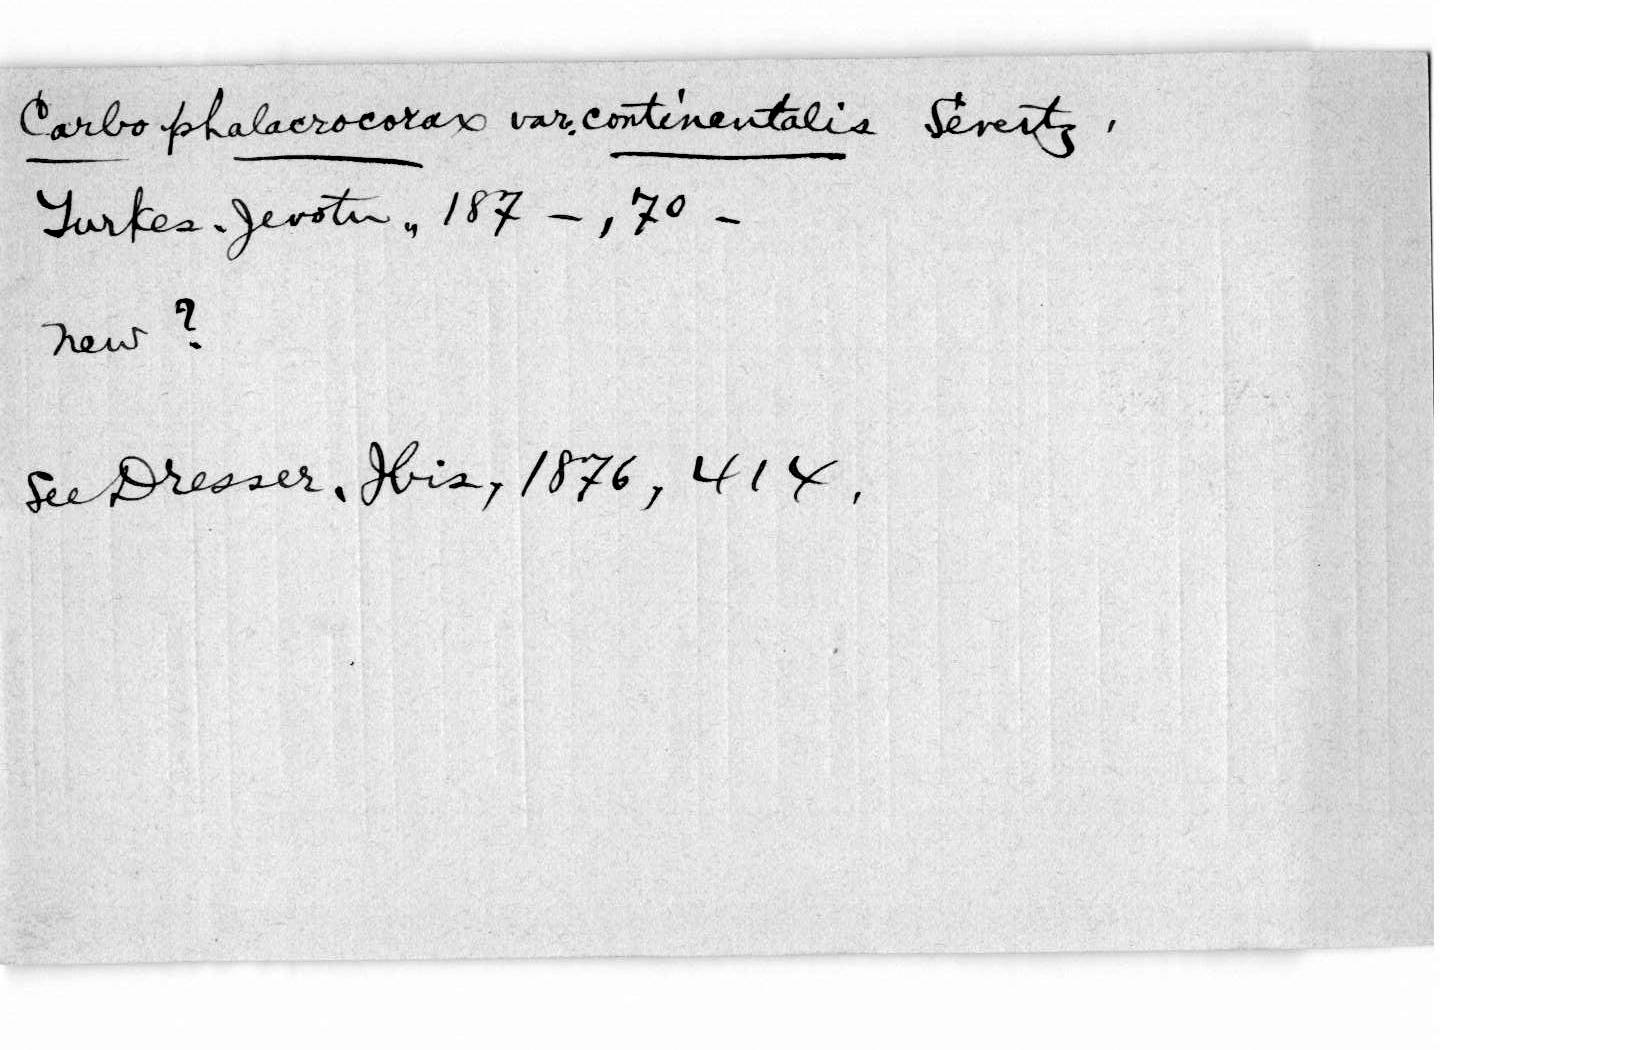 Carbo phalacrocorax var. continentalis Severtz,
Turkes. Jevotn., 187-, 70-
new?
See Dresser, Ibis, 1876, 414.